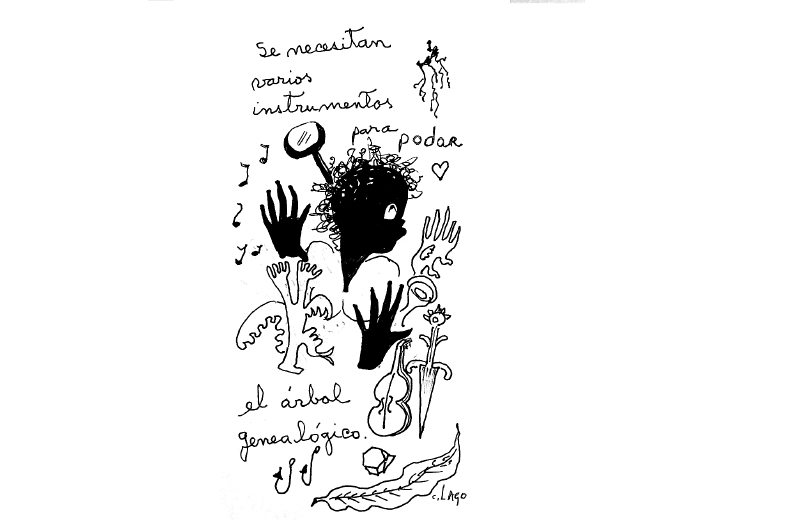 Se necesitan
varios
instrumentos
para podar
el árbol
genealógico.
C. LAGO